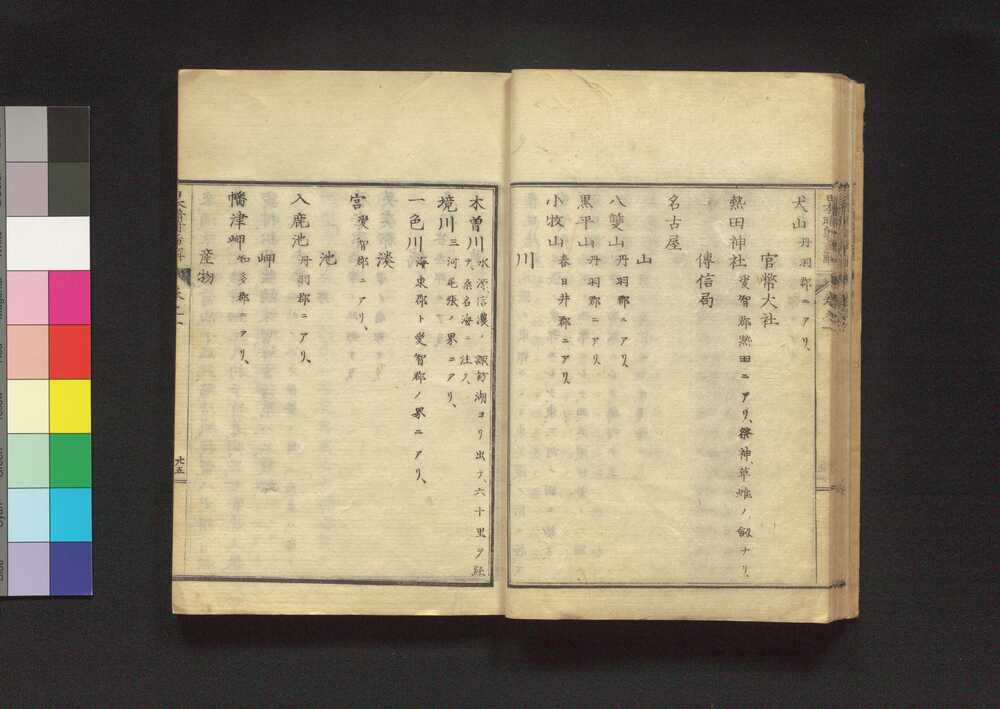 犬山丹羽郡ニアリ、
官幣大社
熱田神社愛智郡熱田ニアリ、祭神草雉ノ劔ナリ、
傳信局
名古屋
山
八雙山丹羽郡ニアリ
黒平山丹羽郡ニアリ
小牧山春日井郡ニアリ
川
木曽川水源信濃ノ諏訪湖ヨリ出テ、六十里ヲ經
テ、桑名海ニ注ク、
境川三河尾張ノ界ニアリ、
一色川海東郡ト愛智郡ノ界ニアリ、
渡
宮愛智郡ニアリ、
池
入鹿池丹羽郡ニアリ、
岬
幡津岬知多郡ニアリ、
産物
廿五